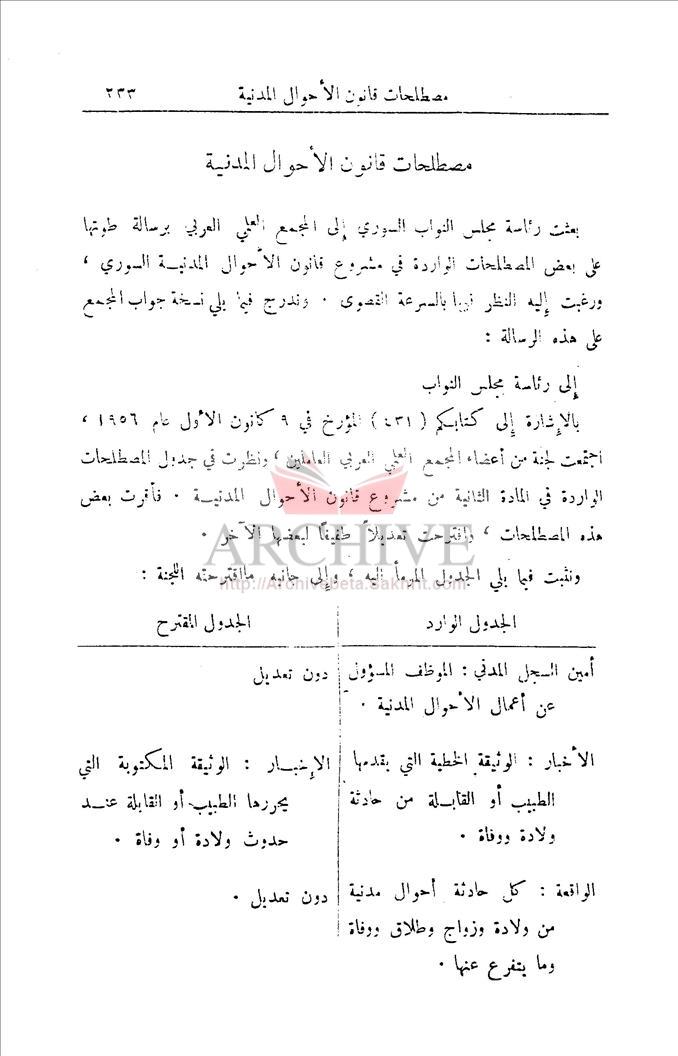 مصطلحات قانون الأحوال المدنية ٢٣٣
مصطلحات قانون الأحوال المدنية
بعثت رئاسة مجلس النواب السوري إلى المجمع العلمي العربي برسالة طوتها
على بعض المصطلحات الواردة في مشروع قانون الأحوال المدنيـة السوري ،
ورغبت إليه النظر فيها بالسرعة القصوى . وندرج فيما يلي نسخة جواب المجمع
على هذه الرسالة :
إلى رئاسة مجلس النواب
بالإشارة إلى كتابكم ( ٤٣١ ) المؤرخ في ٩ كانون الأول عام ١٩٥٦ ،
اجتمعت لجنة من أعضاء المجمع العلمي العربي العاملين ، ونظرت في جدول المصطلحات
الواردة في المادة الثانية من مشروع قانون الأحوال المدنيـة . فأقرت بعض
هذه المصطلحات ، واقترحت تعديلاً طفيفاً لبعضها الآخر .
ARCHIVE
ونثبت فيما يلي الجدول المومأ إليه ، وإلى جانبه مااقترحته اللجنة :
http://Archivebeta.Sakhrit.com
الجدول الوارد الجدول المقترح
أمين السجل المدني : الموظف المسؤول دون تعديل
عن أعمال الأحوال المدنية .
الأخبار : الوثيقة الخطية التي يقدمها الإخبـار : الوثيقة المكتوبة التي
الطبيب أو القابـلة من حادثة يحررها الطبيب أو القابلة عنـد
ولادة ووفاة . حدوث ولادة أو وفاة .
الواقعة : كل حادثة أحوال مدنية دون تعديل .
من ولادة وزواج وطلاق ووفاة
وما يتفرع عنها .